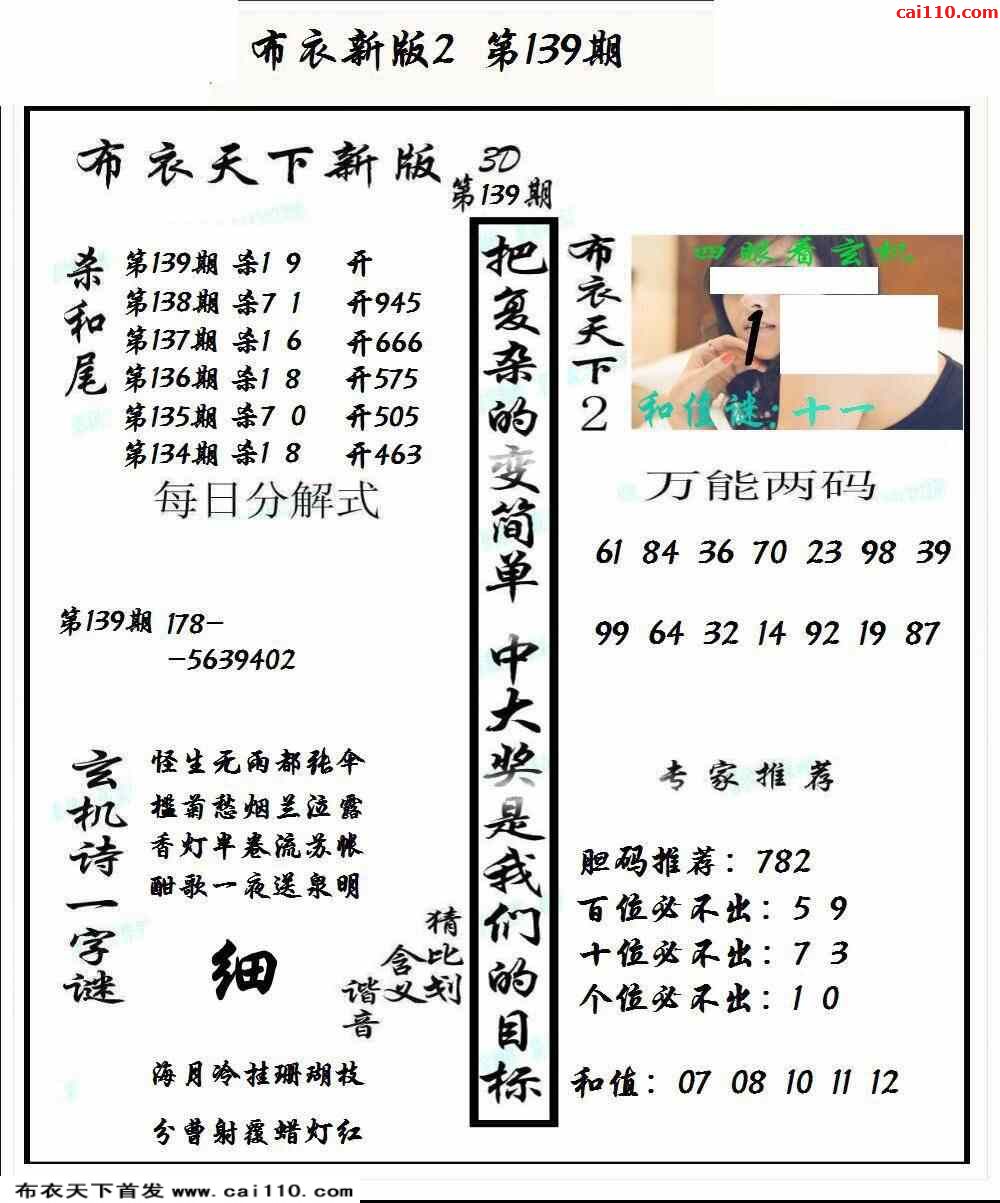 cai110.com
布衣新版2 第139期
布衣天下新版 3D
第139期
杀和尾
第139期 杀1 9 开
第138期 杀7 1 开945
第137期 杀1 6 开666
第136期 杀1 8 开575
第135期 杀7 0 开505
第134期 杀1 8 开463
每日分解式
第139期 178-
-5639402
玄机诗一字谜
怪生无雨都张伞
槛菊愁烟兰泣露
香灯半卷流苏帐
酣歌一夜送泉明
细
猜比划
含义
谐音
海月冷挂珊瑚枝
分曹射覆蜡灯红
把复杂的变简单 中大奖是我们的目标
布衣天下2
四眼看玄机
1
和值谜:十一
万能两码
61 84 36 70 23 98 39
99 64 32 14 92 19 87
专家推荐
胆码推荐：782
百位必不出：5 9
十位必不出：7 3
个位必不出：1 0
和值：07 08 10 11 12
布衣天下首发 www.cai110.com